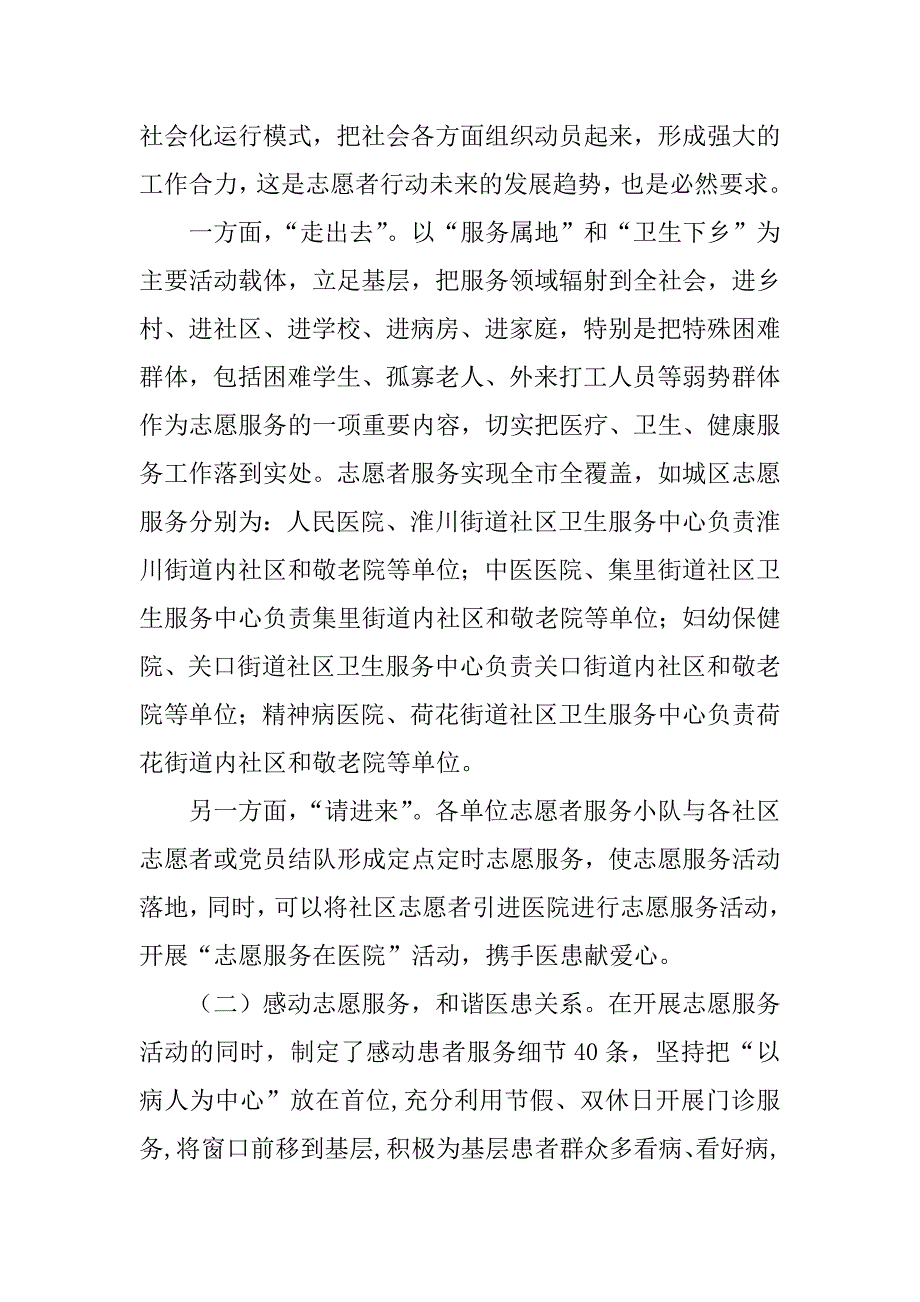 社会化运行模式，把社会各方面组织动员起来，形成强大的
工作合力，这是志愿者行动未来的发展趋势，也是必然要求。
一方面，“走出去”。以“服务属地”和“卫生下乡”为
主要活动载体，立足基层，把服务领域辐射到全社会，进乡
村、进社区、进学校、进病房、进家庭，特别是把特殊困难
群体，包括困难学生、孤寡老人、外来打工人员等弱势群体
作为志愿服务的一项重要内容，切实把医疗、卫生、健康服
务工作落到实处。志愿者服务实现全市全覆盖，如城区志愿
服务分别为：人民医院、淮川街道社区卫生服务中心负责淮
川街道内社区和敬老院等单位；中医医院、集里街道社区卫
生服务中心负责集里街道内社区和敬老院等单位；妇幼保健
院、关口街道社区卫生服务中心负责关口街道内社区和敬老
院等单位；精神病医院、荷花街道社区卫生服务中心负责荷
花街道内社区和敬老院等单位。
另一方面，“请进来”。各单位志愿者服务小队与各社区
志愿者或党员结队形成定点定时志愿服务，使志愿服务活动
落地，同时，可以将社区志愿者引进医院进行志愿服务活动，
开展“志愿服务在医院”活动，携手医患献爱心。
（二）感动志愿服务，和谐医患关系。在开展志愿服务
活动的同时，制定了感动患者服务细节 40 条，坚持把“以
病人为中心”放在首位,充分利用节假、双休日开展门诊服
务,将窗口前移到基层,积极为基层患者群众多看病、看好病,